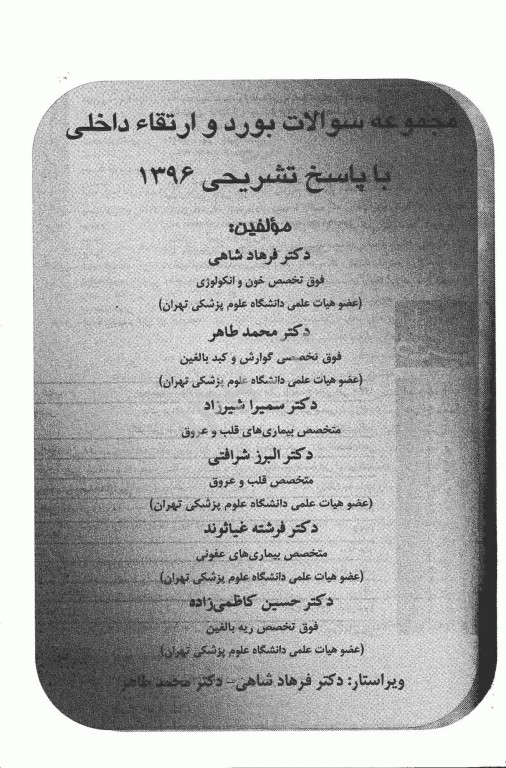 مجموعه سوالات بورد و ارتقاء داخلی
با پاسخ تشریحی ۱۳۹۶
مؤلفین:
دکتر فرهاد شاهی
فوق تخصص خون و انکولوژی
(عضو هیات علمی دانشگاه علوم پزشکی تهران)
دکتر محمد طاهر
فوق تخصصی گوارش و کبد بالغین
(عضو هیات علمی دانشگاه علوم پزشکی تهران)
دکتر سمیرا شیرزاد
متخصص بیماری‌های قلب و عروق
دکتر البرز شرافتی
متخصص قلب و عروق
(عضو هیات علمی دانشگاه علوم پزشکی تهران)
دکتر فرشته غیاثوند
متخصص بیماری‌های عفونی
(عضو هیات علمی دانشگاه علوم پزشکی تهران)
دکتر حسین کاظمی‌زاده
فوق تخصص ریه بالغین
(عضو هیات علمی دانشگاه علوم پزشکی تهران)
ویراستار: دکتر فرهاد شاهی- دکتر محمد طاهر